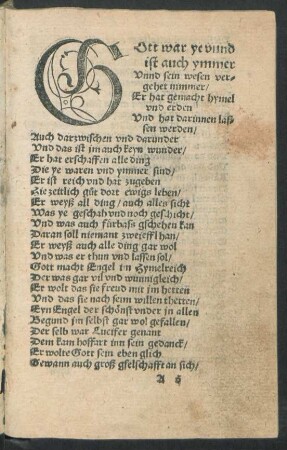 Gott war ye vnnd
ist auch ymmer
Vnnd sein wesen ver-
gehet nimmer/
Er hat gemacht hymel
vnd erden
Vnd hat darinnen las-
sen werden/
Auch darzwischen vnd darunder
Vnd das ist jm auch keyn wunder/
Er hat erschaffen alle ding
Die ye waren vnd ymmer sind/
Er ist reich vnd hat zugeben
Hie zeitlich gůt dort ewigs leben/
Er weyß all ding/ auch alles sicht
Was ye geschah vnd noch geschicht/
Vnd was auch fürbaß gschehen kan
Daran soll niemant zweiffel han/
Er weyß auch alle ding gar wol
Vnd was er thun vnd lassen sol/
Gott macht Engel im Hymelreich
Der was gar vil vnd wunnigleich/
Er wolt das sie freud mit im hetten
Vnd das sie nach seim willen thetten/
Eyn Engel der schönst vnder in allen
Begund jm selbst gar wol gefallen/
Der selb war Lucifer genant
Dem kam hoffart inn sein gedanck/
Er wolte Gott sein eben glich
Gewann auch groß gselschafft an sich/
A